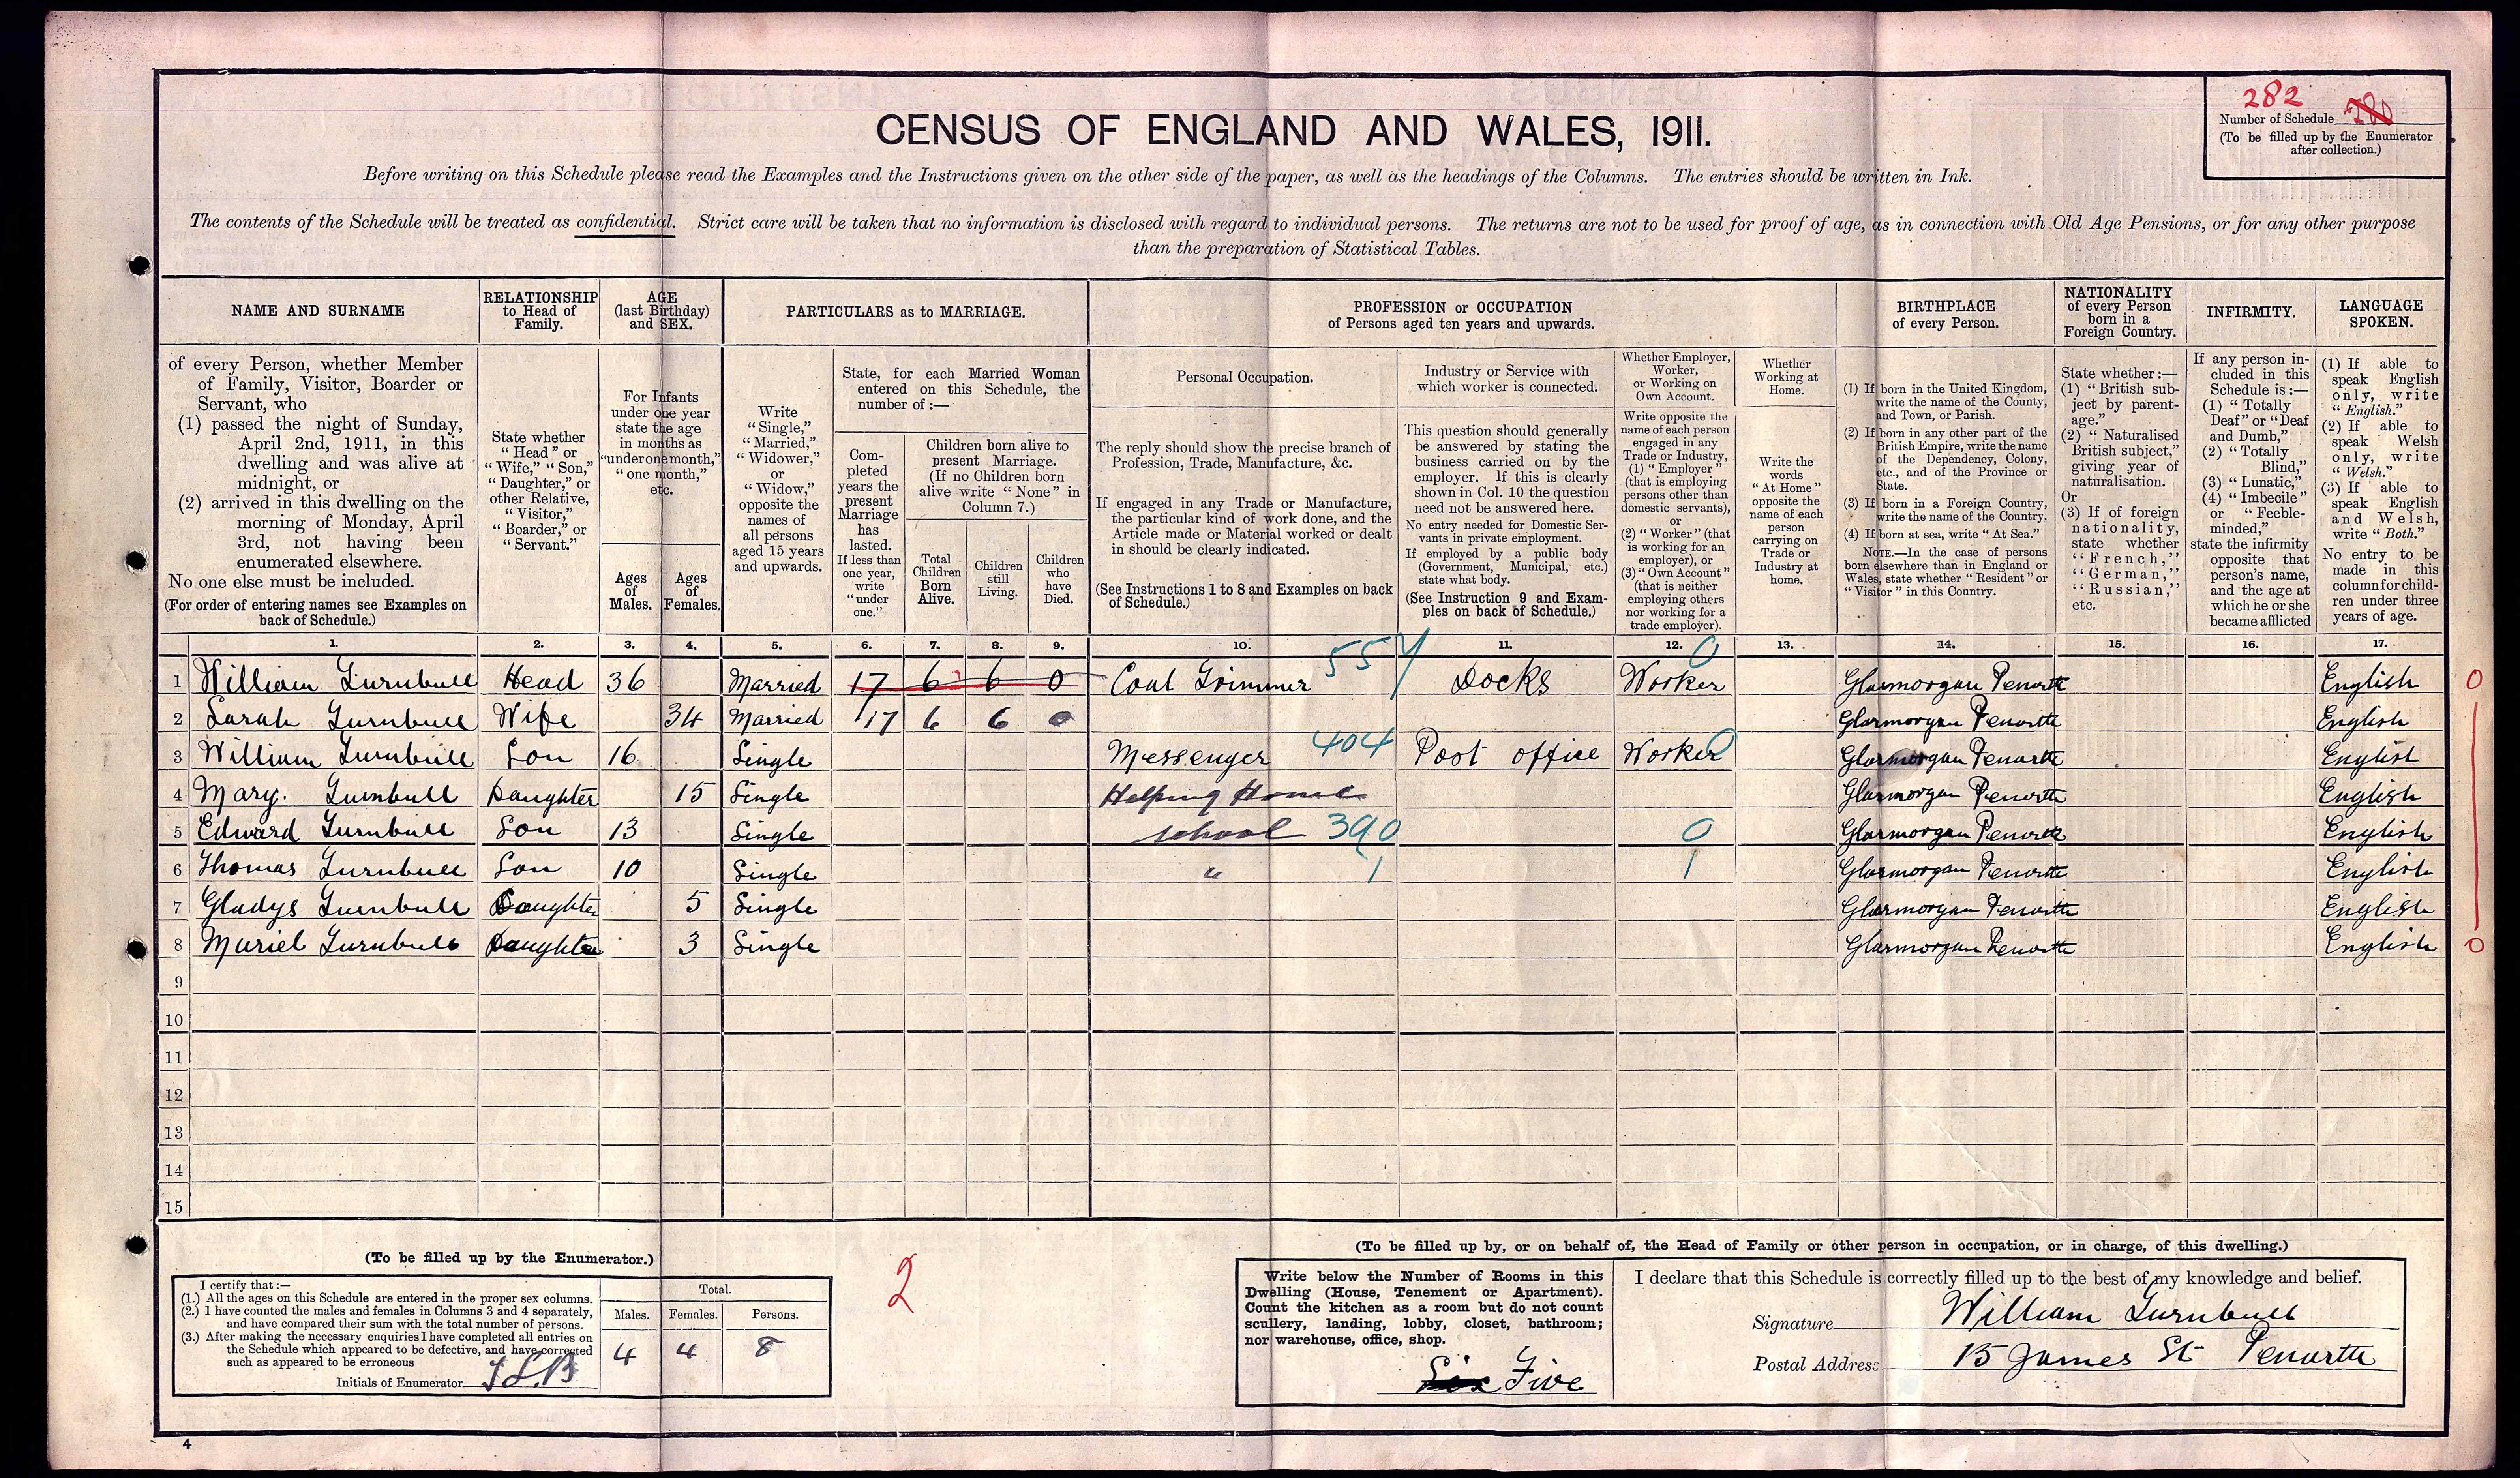 282 280
Number of Schedule
(To be filled up by the Enumerator
after collection.)
CENSUS OF ENGLAND AND WALES, 1911.
Before writing on this Schedule please read the Examples and the Instructions given on the other side of the paper, as well as the headings of the Columns. The entries should be written in Ink.
The contents of the Schedule will be treated as confidential. Strict care will be taken that no information is disclosed with regard to individual persons. The returns are not to be used for proof of age, as in connection with Old Age Pensions, or for any other purpose
than the preparation of Statistical Tables.
NAME AND SURNAME
of every Person, whether Member
of Family, Visitor, Boarder or
Servant, who
(1) passed the night of Sunday,
April 2nd, 1911, in this
dwelling and was alive at
midnight, or
(2) arrived in this dwelling on the
morning of Monday, April
3rd, not having been
enumerated elsewhere.
No one else must be included.
(For order of entering names see Examples on
back of Schedule.)
RELATIONSHIP
to Head of
Family.
State whether
"Head" or
"Wife," "Son,"
"Daughter," or
other Relative,
"Visitor,"
"Boarder," or
"Servant."
AGE
(last Birthday)
and SEX.
For Infants
under one year
state the age
in months as
"under one month,"
"one month,"
etc.
Ages
of
Males.
Ages
of
Females.
PARTICULARS as to MARRIAGE.
Write
"Single,"
"Married,"
"Widower,"
or
"Widow,"
opposite the
names of
all persons
aged 15 years
and upwards.
State, for each Married Woman
entered on this Schedule, the
number of :—
Com-
pleted
years the
present
Marriage
has
lasted.
If less than
one year,
write
"under
one."
Children born alive to
present Marriage.
(If no Children born
alive write "None" in
Column 7.)
Total
Children
Born
Alive.
Children
still
Living.
Children
who
have
Died.
PROFESSION or OCCUPATION
of Persons aged ten years and upwards.
Personal Occupation.
The reply should show the precise branch of
Profession, Trade, Manufacture, &c.
If engaged in any Trade or Manufacture,
the particular kind of work done, and the
Article made or Material worked or dealt
in should be clearly indicated.
(See Instructions 1 to 8 and Examples on back
of Schedule.)
Industry or Service with
which worker is connected.
This question should generally
be answered by stating the
business carried on by the
employer. If this is clearly
shown in Col. 10 the question
need not be answered here.
No entry needed for Domestic Ser-
vants in private employment.
If employed by a public body
(Government, Municipal, etc.)
state what body.
(See Instruction 9 and Exam-
ples on back of Schedule.)
Whether Employer,
Worker,
or Working on
Own Account.
Write opposite the
name of each person
engaged in any
Trade or Industry,
(1) "Employer"
(that is employing
persons other than
domestic servants),
or
(2) "Worker" (that
is working for an
employer), or
(3) "Own Account"
(that is neither
employing others
nor working for a
trade employer).
Whether
Working at
Home.
Write the
words
"At Home"
opposite the
name of each
person
carrying on
Trade or
Industry at
home.
BIRTHPLACE
of every Person.
(1) If born in the United Kingdom,
write the name of the County,
and Town, or Parish.
(2) If born in any other part of the
British Empire, write the name
of the Dependency, Colony,
etc., and of the Province or
State.
(3) If born in a Foreign Country,
write the name of the Country.
(4) If born at sea, write "At Sea."
NOTE.—In the case of persons
born elsewhere than in England or
Wales, state whether "Resident" or
"Visitor" in this Country.
NATIONALITY
of every Person
born in a
Foreign Country.
State whether :—
(1) "British sub-
ject by parent-
age."
(2) "Naturalised
British subject,"
giving year of
naturalisation.
Or
(3) If of foreign
nationality,
state whether
"French,"
"German,"
"Russian,"
etc.
INFIRMITY.
If any person in-
cluded in this
Schedule is :—
(1) "Totally
Deaf" or "Deaf
and Dumb,"
(2) "Totally
Blind,"
(3) "Lunatic,"
(4) "Imbecile"
or "Feeble-
minded,"
state the infirmity
opposite that
person's name,
and the age at
which he or she
became afflicted
LANGUAGE
SPOKEN.
(1) If able to
speak English
only, write
"English."
(2) If able to
speak Welsh
only, write
"Welsh."
(3) If able to
speak English
and Welsh,
write "Both."
No entry to be
made in this
column for child-
ren under three
years of age.
1. 2. 3. 4. 5. 6. 7. 8. 9. 10. 11. 12. 13. 14. 15. 16. 17.
1 William Turnbull Head 36 Married 17 6 6 0 Coal Trimmer 557 Docks Worker 0 Glarmorgan Penarth English 0
2 Sarah Turnbull Wife 34 Married 17 6 6 0 Glarmorgan Penarth English
3 William Turnbull Son 16 Single Messenger 404 Post office Worker 0 Glarmorgan Penarth English
4 Mary. Turnbull Daughter 15 Single Helping Home Glarmorgan Penarth English
5 Edward Turnbull Son 13 Single school 390 0 Glarmorgan Penarth English
6 Thomas Turnbull Son 10 Single " 1 1 Glarmorgan Penarth English
7 Gladys Turnbull Daughter 5 Single Glarmorgan Penarth English
8 Muriel Turnbull Daughter 3 Single Glarmorgan Penarth English 0
9
10
11
12
13
14
15
(To be filled up by the Enumerator.)
I certify that :—
(1.) All the ages on this Schedule are entered in the proper sex columns.
(2.) I have counted the males and females in Columns 3 and 4 separately,
and have compared their sum with the total number of persons.
(3.) After making the necessary enquiries I have completed all entries on
the Schedule which appeared to be defective, and have corrected
such as appeared to be erroneous
Initials of Enumerator
Total.
Males. Females. Persons.
4 4 8
2
(To be filled up by, or on behalf of, the Head of Family or other person in occupation, or in charge, of this dwelling.)
Write below the Number of Rooms in this
Dwelling (House, Tenement or Apartment).
Count the kitchen as a room but do not count
scullery, landing, lobby, closet, bathroom;
nor warehouse, office, shop.
Six Five
I declare that this Schedule is correctly filled up to the best of my knowledge and belief.
Signature William Turnbull
Postal Address 15 James St Penarth
4